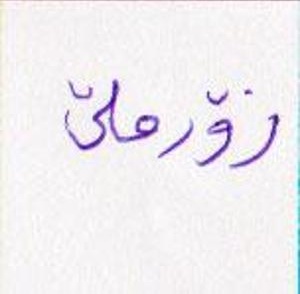 زۆرملێ